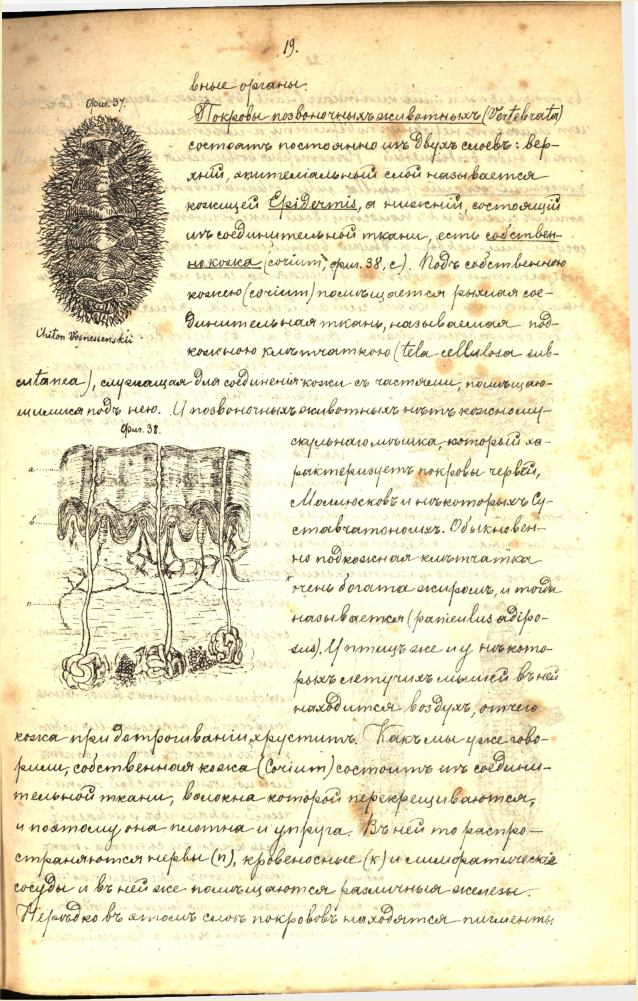 19.
вные органы.
Фиг. 37.
Покровы позвоночныхъ животныхъ (Vertebrata)
состоятъ постоянно изъ двухъ слоевъ: вер-
хній, эпителіальный слой называется
кожицей Epidermis, а нижній, состоящій
изъ соединительной ткани, есть собствен-
но кожа (corium, фиг. 38, c). Подъ собственною
кожею (corium) помѣщается рыхлая сое-
динительная ткань, называемая под-
кожною клѣтчаткою (tela cellulosa sub-
Chiton Vosnesenskii
cutanea), служащая для соединенія кожи съ частями, помѣщаю-
щимися подъ нею. У позвоночныхъ животныхъ нѣтъ кожному-
Фиг. 38.
скульнаго мѣшка, который ха-
рактеризуетъ покровы червей,
Моллюсковъ и нѣкоторыхъ Су-
ставчатоногихъ. Обыкновен-
но подкожная клѣтчатка
очень богата жиромъ, и тогда
называется (paniculus adipo-
sus). У птицъ же и у нѣкото-
рыхъ летучихъ мышей въ ней
находится воздухъ, отчего
a
б
n
кожа при дотрогиваніи хруститъ. Какъ мы уже гово-
рили, собственная кожа (Corium) состоитъ изъ соедини-
тельной ткани, волокна которой перекрещиваются,
и поэтому она плотна и упруга. Въ ней то распро-
страняются нервы (n), кровеносные (к) и лимфатическіе
сосуды и въ ней же помѣщаются различныя железы.
Нерѣдко въ этомъ слоѣ покрововъ находятся пигменты